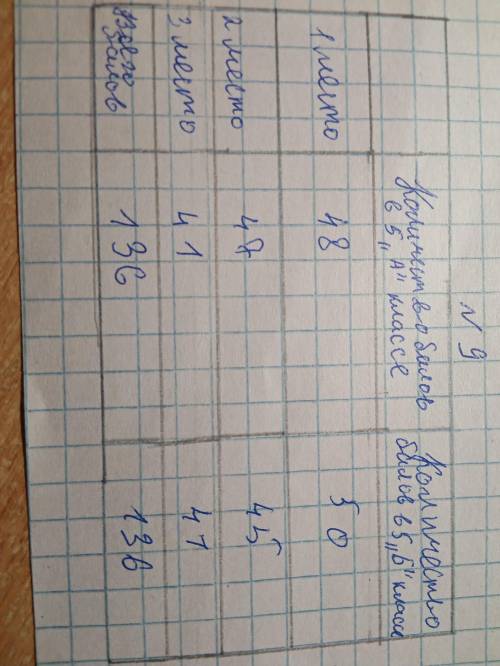 № 9
Количество балов
в 5 „А" классе
Количество
балов в 5 „Б" классе
1 место
48
50
2 место
47
45
3 место
41
41
Всего
балов
136
136